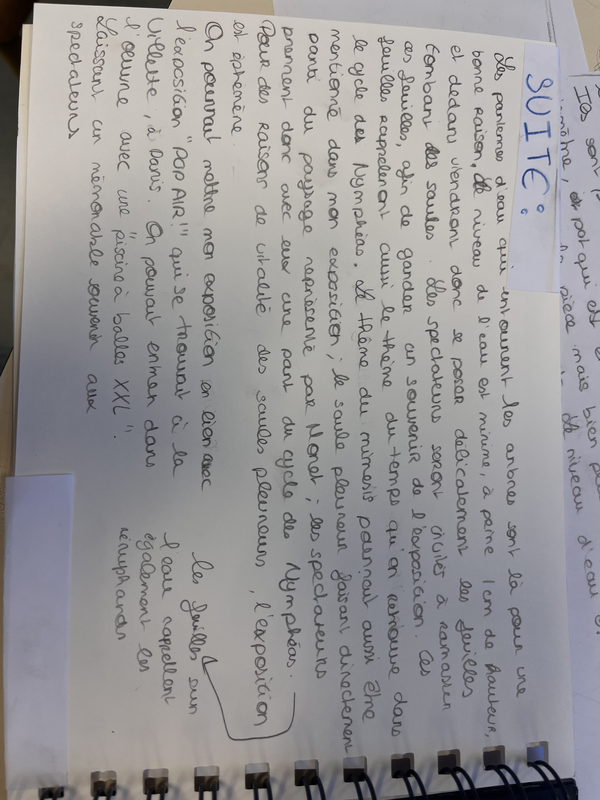 SUITE :
Les parterres d'eau qui entourent les arbres sont là pour une
bonne raison, le niveau de l'eau est minime, à peine 1 cm de hauteur,
et dedans viendront donc se poser délicatement les feuilles
tombant des saules. Les spectateurs seront invités à ramasser
ces feuilles, afin de garder un souvenir de l'exposition. Ces
feuilles rappelent aussi le thème du temps qu'on retrouve dans
le cycle des Nymphéas. Le thème du mimesis pourrait aussi être
mentionné dans mon exposition ; le saule pleureur faisant directement
parti du paysage représenté par Monet ; les spectateurs
prennent donc avec eux une part du cycle des Nymphéas.
Pour des raison de vitalité des saules pleureurs, l'exposition
est éphémère.
On pourrait mettre mon exposition en lien avec
l'exposition "POP AIR!" qui se trouvait à la
Villette, à Paris. On pouvait entrer dans
l'œuvre avec une "piscine à balles XXL".
Laissant un mémorable souvenir aux
spectateurs
les feuilles sur
l'eau rappellent
également les
nénuphards
Ils sont
qui est
pièce mais bien
le niveau d'eau